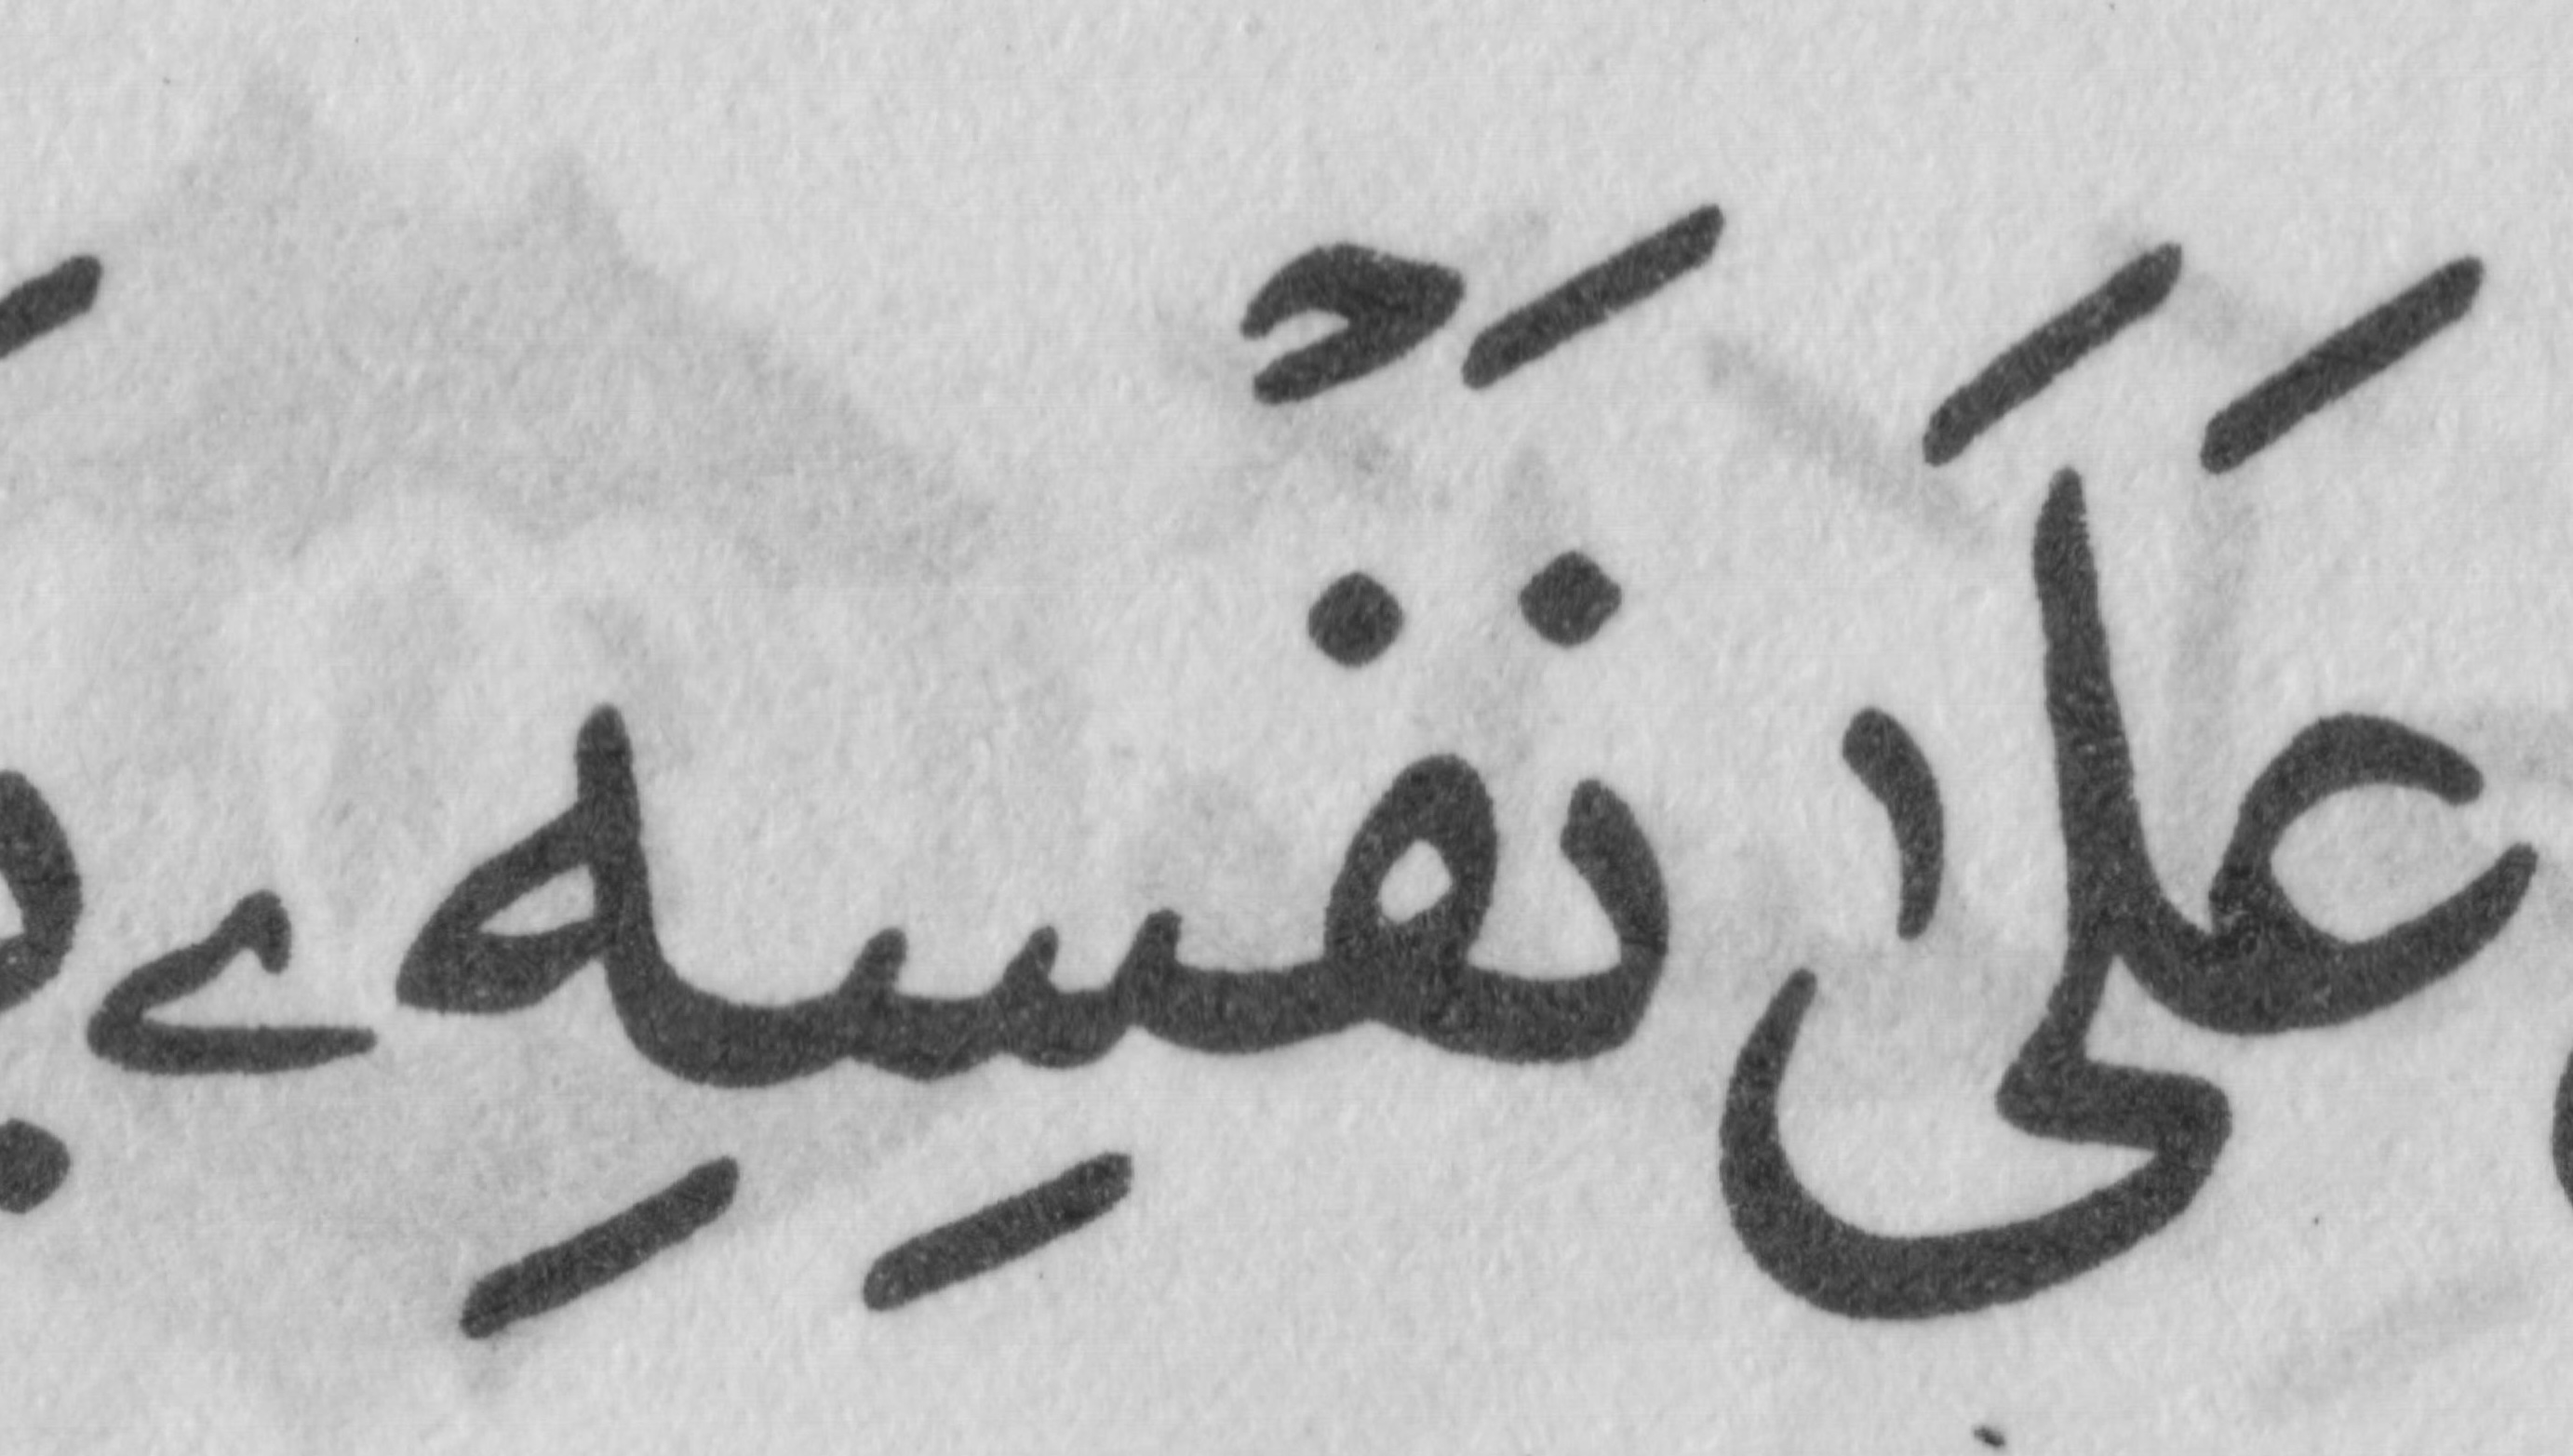 عَلَىٰ نَفْسِهِۦ